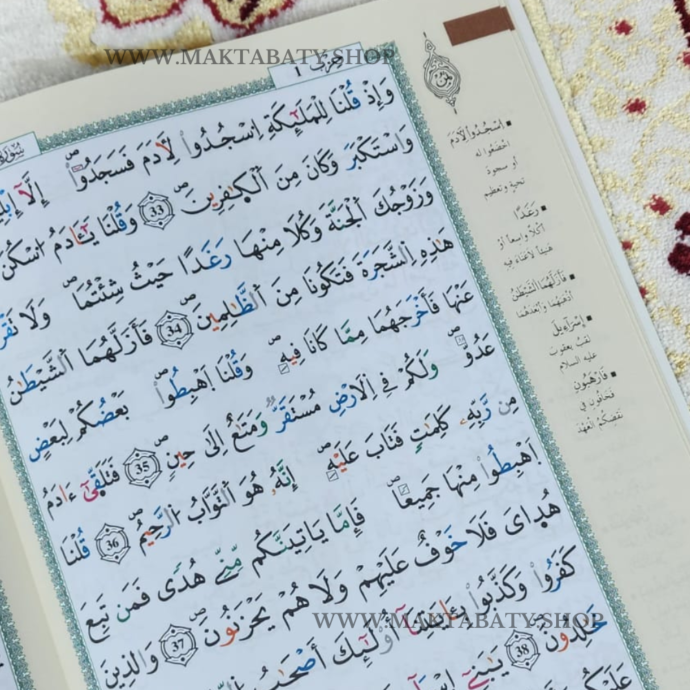 WWW.MAKTABATY.SHOP
حزب 1
ثمن
وَإِذْ قُلْنَا لِلْمَلَٰٓئِكَةِ اِسْجُدُواْ لِأٓدَمَ فَسَجَدُوٓاْ إِلَّآ
وَاسْتَكْبَرَ وَكَانَ مِنَ اَلْكٰفِرِينَۖ 33 وَقُلْنَا يَٰٓـَٔادَمُ اُسْكُنْ
وَزَوْجُكَ اَلْجَنَّةَ وَكُلَا مِنْهَا رَغَداً حَيْثُ شِئْتُمَا وَلَا
هَٰذِهِ اِلشَّجَرَةَ فَتَكُونَا مِنَ اَلظَّٰلِمِينَۖ 34 فَأَزَلَّهُمَا اَلشَّيْطَٰنُ
عَنْهَا فَأَخْرَجَهُمَا مِمَّا كَانَا فِيهِۖ وَقُلْنَا اَهْبِطُواْ بَعْضُكُمْ لِبَعْضٍ
عَدُوّٞۖ وَلَكُمْ فِي اِلَارْضِ مُسْتَقَرّٞ وَمَتَٰعٌ إِلَىٰ حِينٖۖ 35 فَتَلَقَّىٰٓ ءَادَمُ
مِن رَّبِّهِۦ كَلِمَٰتٖ فَتَابَ عَلَيْهِۖ إِنَّهُۥ هُوَ اَلتَّوَّابُ اُلرَّحِيمُۖ 36 قُلْنَا
اَهْبِطُواْ مِنْهَا جَمِيعاٗۖ فَإِمَّا يَاتِيَنَّكُم مِّنِّے هُدٗى فَمَن تَبِعَ
هُدَايَ فَلَا خَوْفٌ عَلَيْهِمْ وَلَا هُمْ يَحْزَنُونَۖ 37 وَالذِينَ
كَفَرُواْ وَكَذَّبُواْ بِـَٔايَٰتِنَآ أُوْلَٰٓئِكَ أَصْحَٰبُ
خَٰلِدُونَۖ 38 يَٰبَنِےٓ
عَلَيْكُمْ
▪ اسْجُدُواْ لِأٓدَمَ
اخضعوا له
أو سجود
تحية وتعظيم
▪ رَغَداً
أكلا واسعا أو
هنيئا لا عناء فيه
▪ فَأَزَلَّهُمَا اَلشَّيْطَٰنُ
أذهبهما وأبعدهما
▪ إِسْرَآءِيلَ
لقب يعقوب
عليه السلام
▪ فَارْهَبُونِ
فخافون في
نقضكم العهد
WWW.MAKTABATY.SHOP